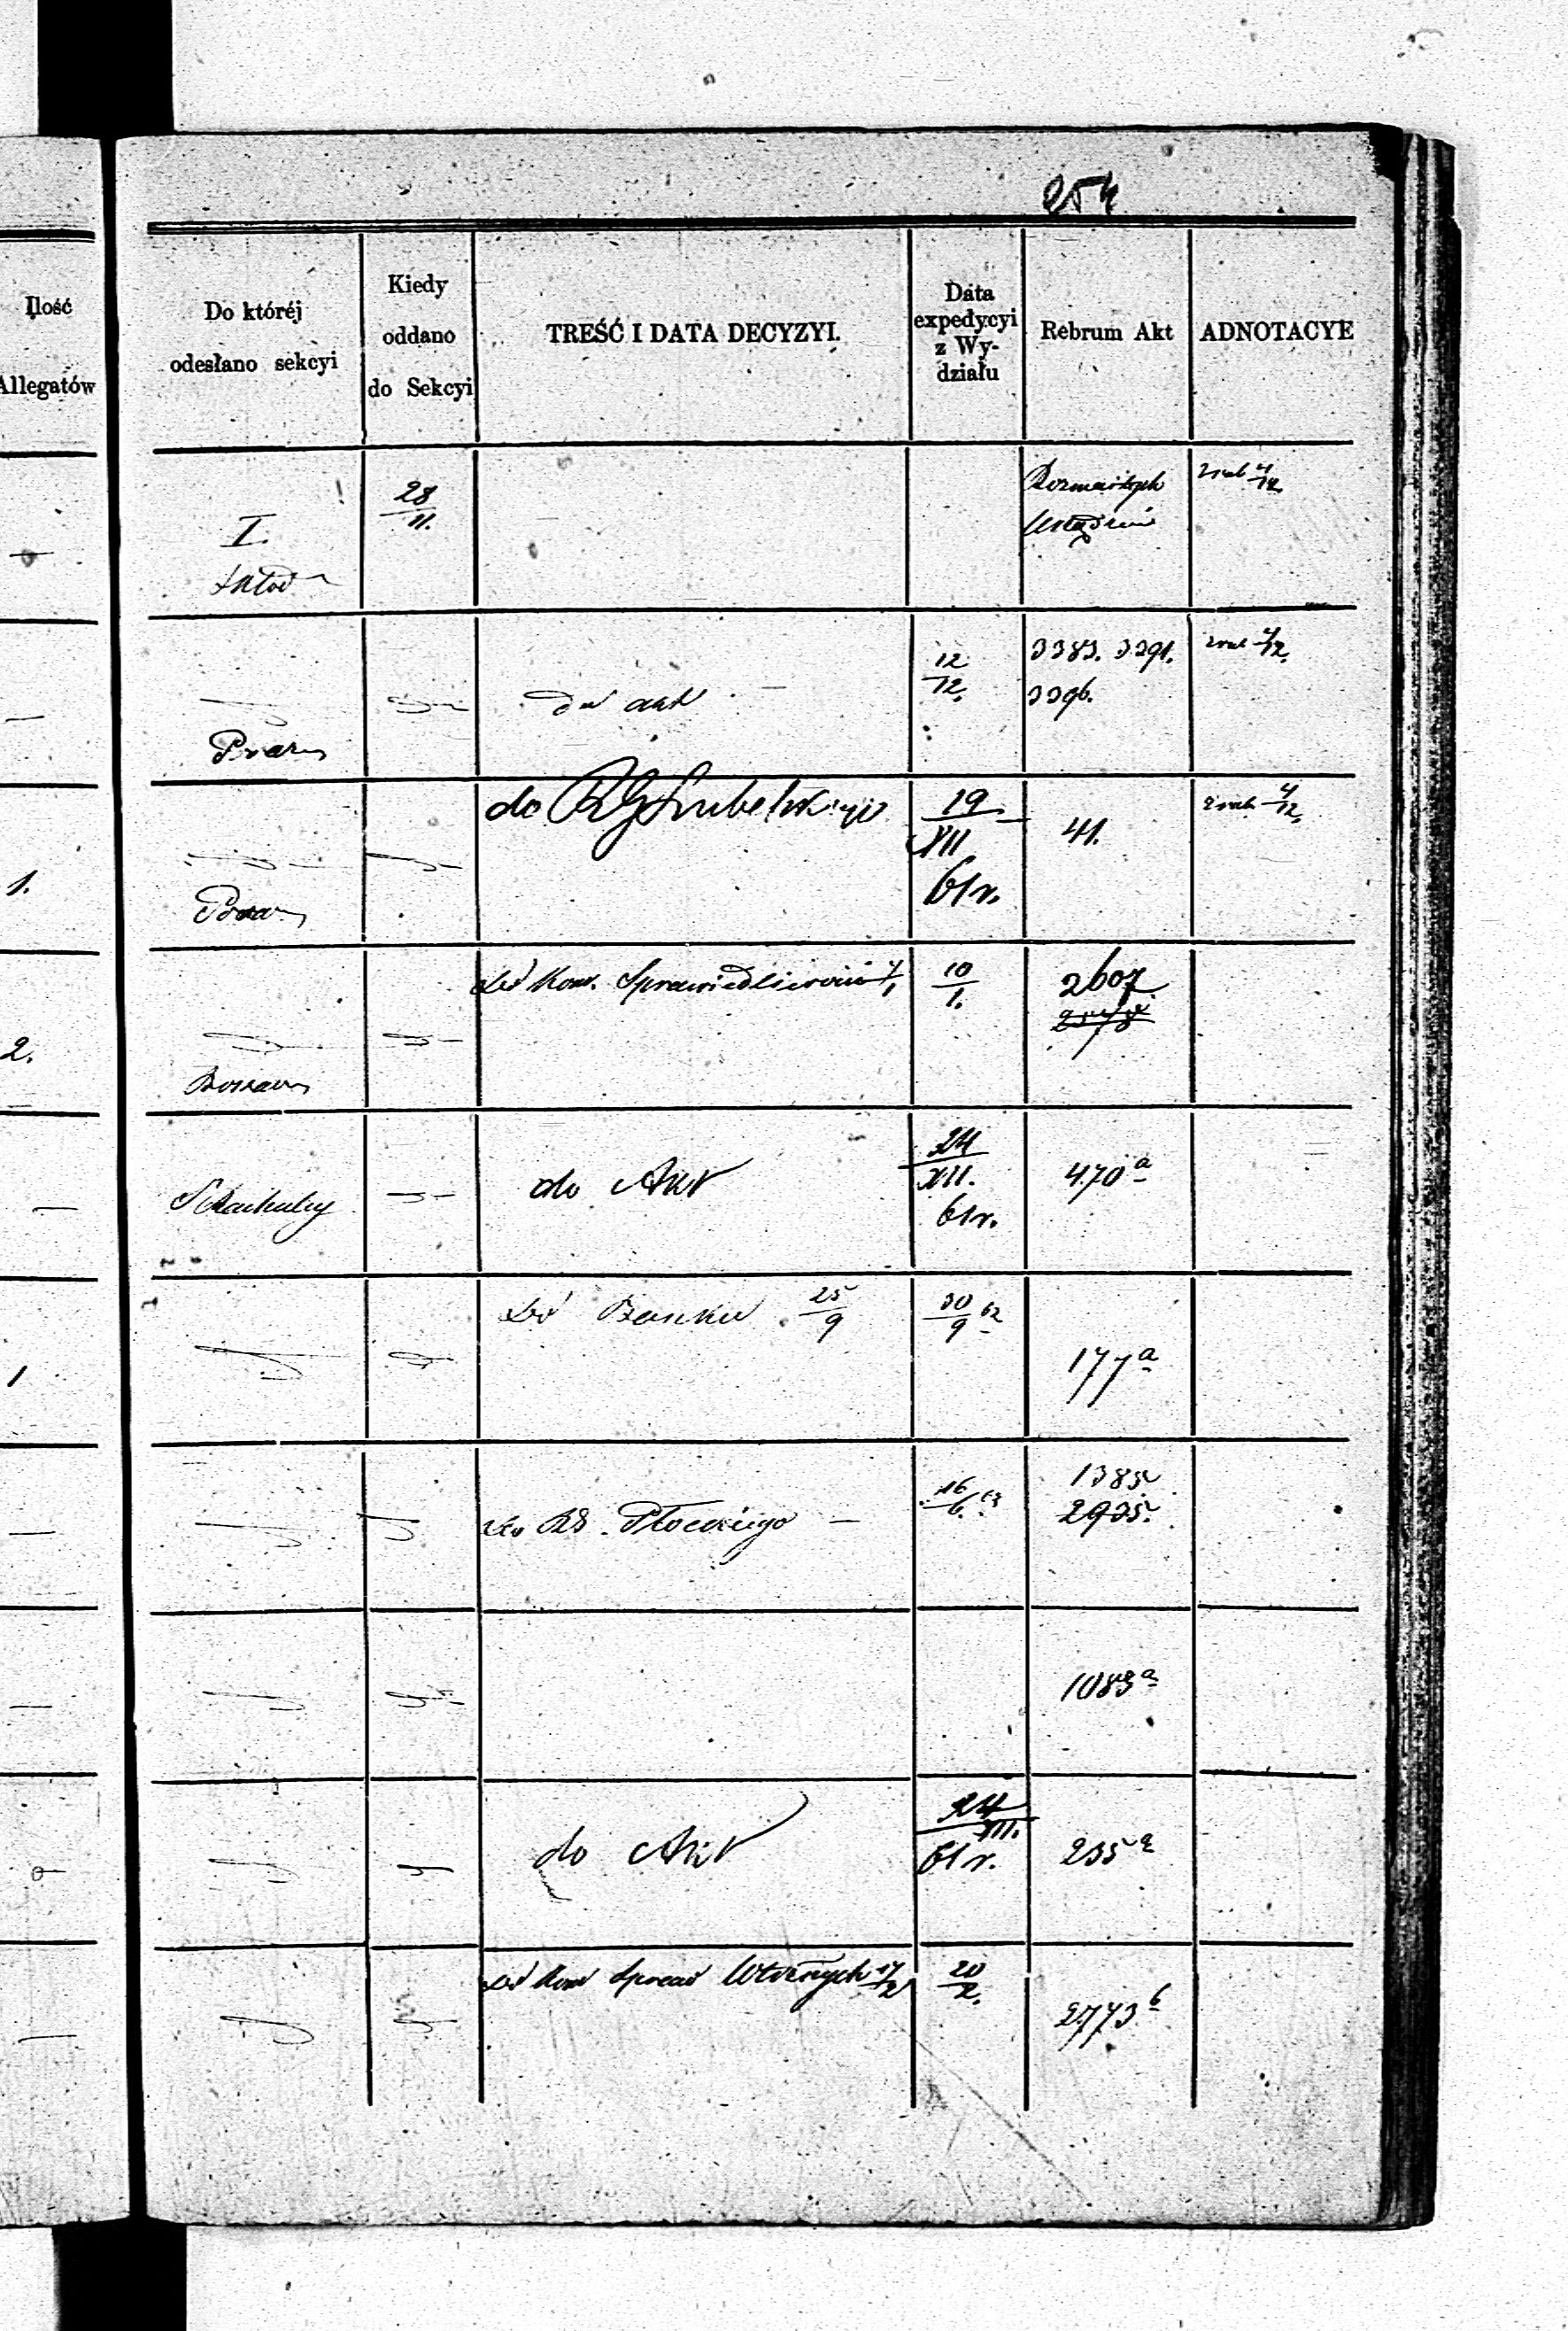 254
Ilość
Allegatów
Do któréj
odesłano sekcyi
Kiedy
oddano
do Sekcyi
TREŚĆ I DATA DECYZYI.
Data
expedycyi
z Wy-
działu
Rebrum Akt
ADNOTACYE
—
I.
28
11.
Rozmaitych
Urządzeń
4
12
—
do akt
12
12.
3383. 3391.
3396.
4
12.
1.
do RG Lubelskiego
19
XII
61 r.
41.
4
12.
2.
do Kom. Sprawiedliwości
10
1.
2607
—
do Akt
24
XII.
61 r.
470 a
1
do Banku 25
9
30 62
9
177 a
—
do RG. Płockiego —
16
6.
1385
2935.
—
1083 a
do Akt
24
XII.
61 r.
235 a
—
do Kom Spraw Wewnętrznych 17
2
20
2.
2773 b